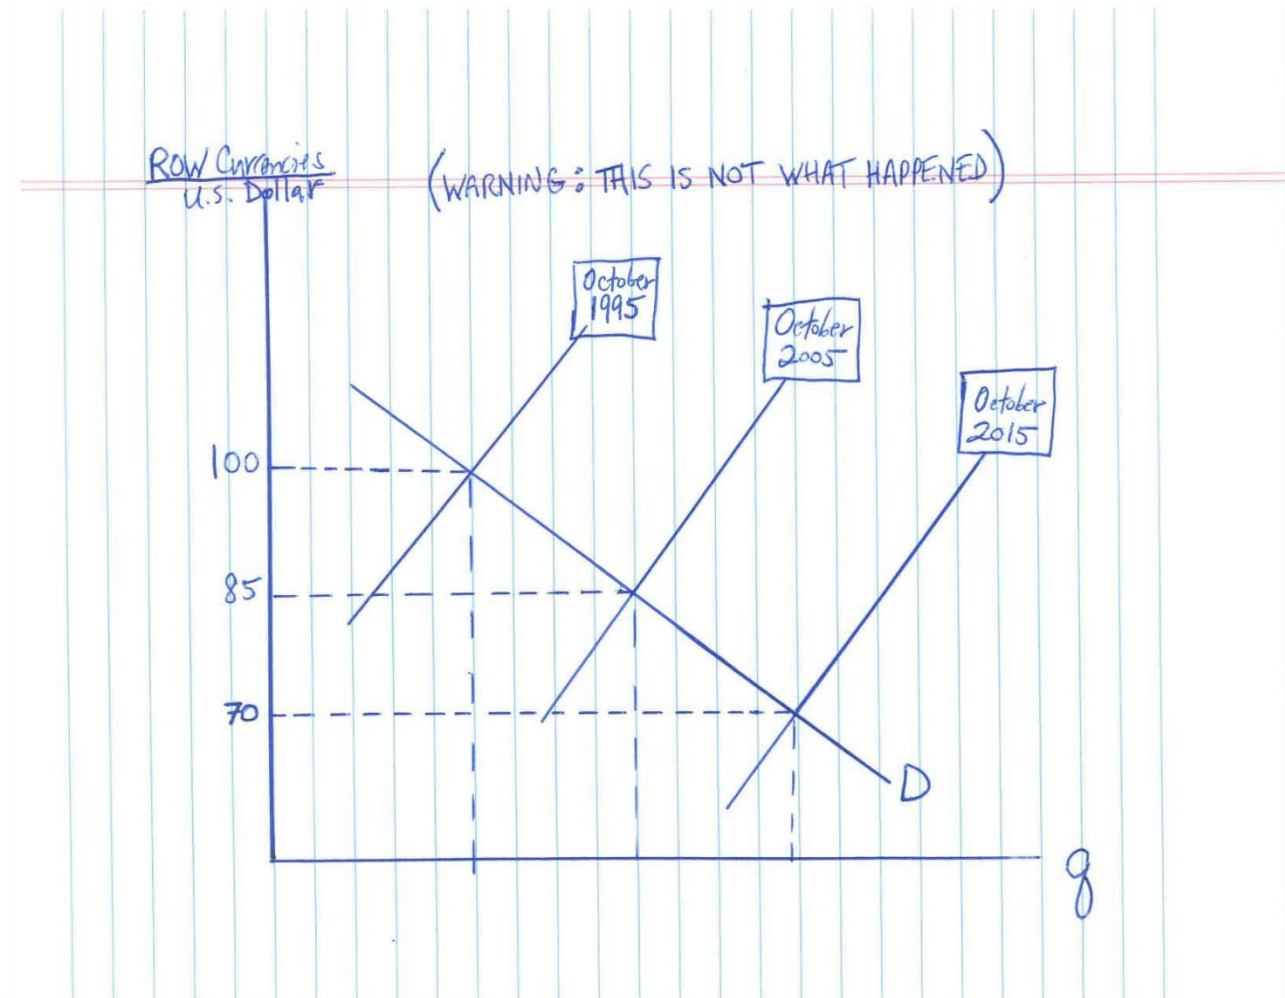 ROW Currencies
U.S. Dollar
(WARNING: THIS IS NOT WHAT HAPPENED)
October
1995
October
2005
October
2015
100
85
70
D
q